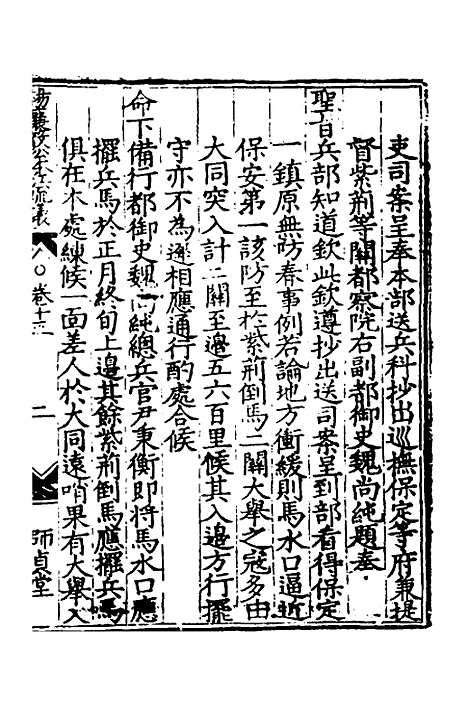 吏司案呈奉本部送兵科抄出巡撫保定等府兼提
督紫荆等關都察院右副都御史魏尚純題奉
聖旨兵部知道欽此欽遵抄出送司案呈到部看得保定
一鎮原無防春事例若論地方衝緩則馬水口逼近
保安第一該防至於紫荆倒馬二關大舉之寇多由
大同突入計二關至邊五六百里候其入邊方行擺
守亦不為遲相應通行酌處合候
命下備行都御史魏尚純總兵官尹秉衡即將馬水口應
擺兵馬於正月終旬上邊其餘紫荆倒馬應擺兵馬
俱在本處練候一面差人於大同遠哨果有大舉入
楊襄毅公本兵疏議 卷十三 二 師貞堂